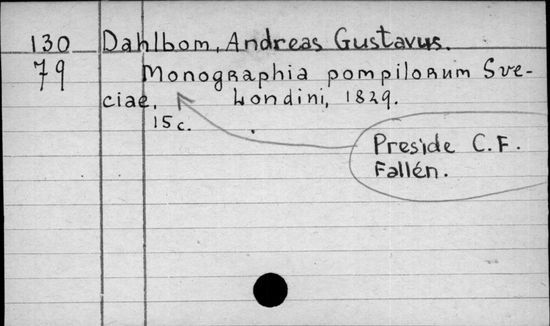 130 Dahlbom, Andreas Gustavus.
79 Monographia pompilorum Sve-
ciae. Londini, 1829.
15c.
Preside C.F.
Fallén.